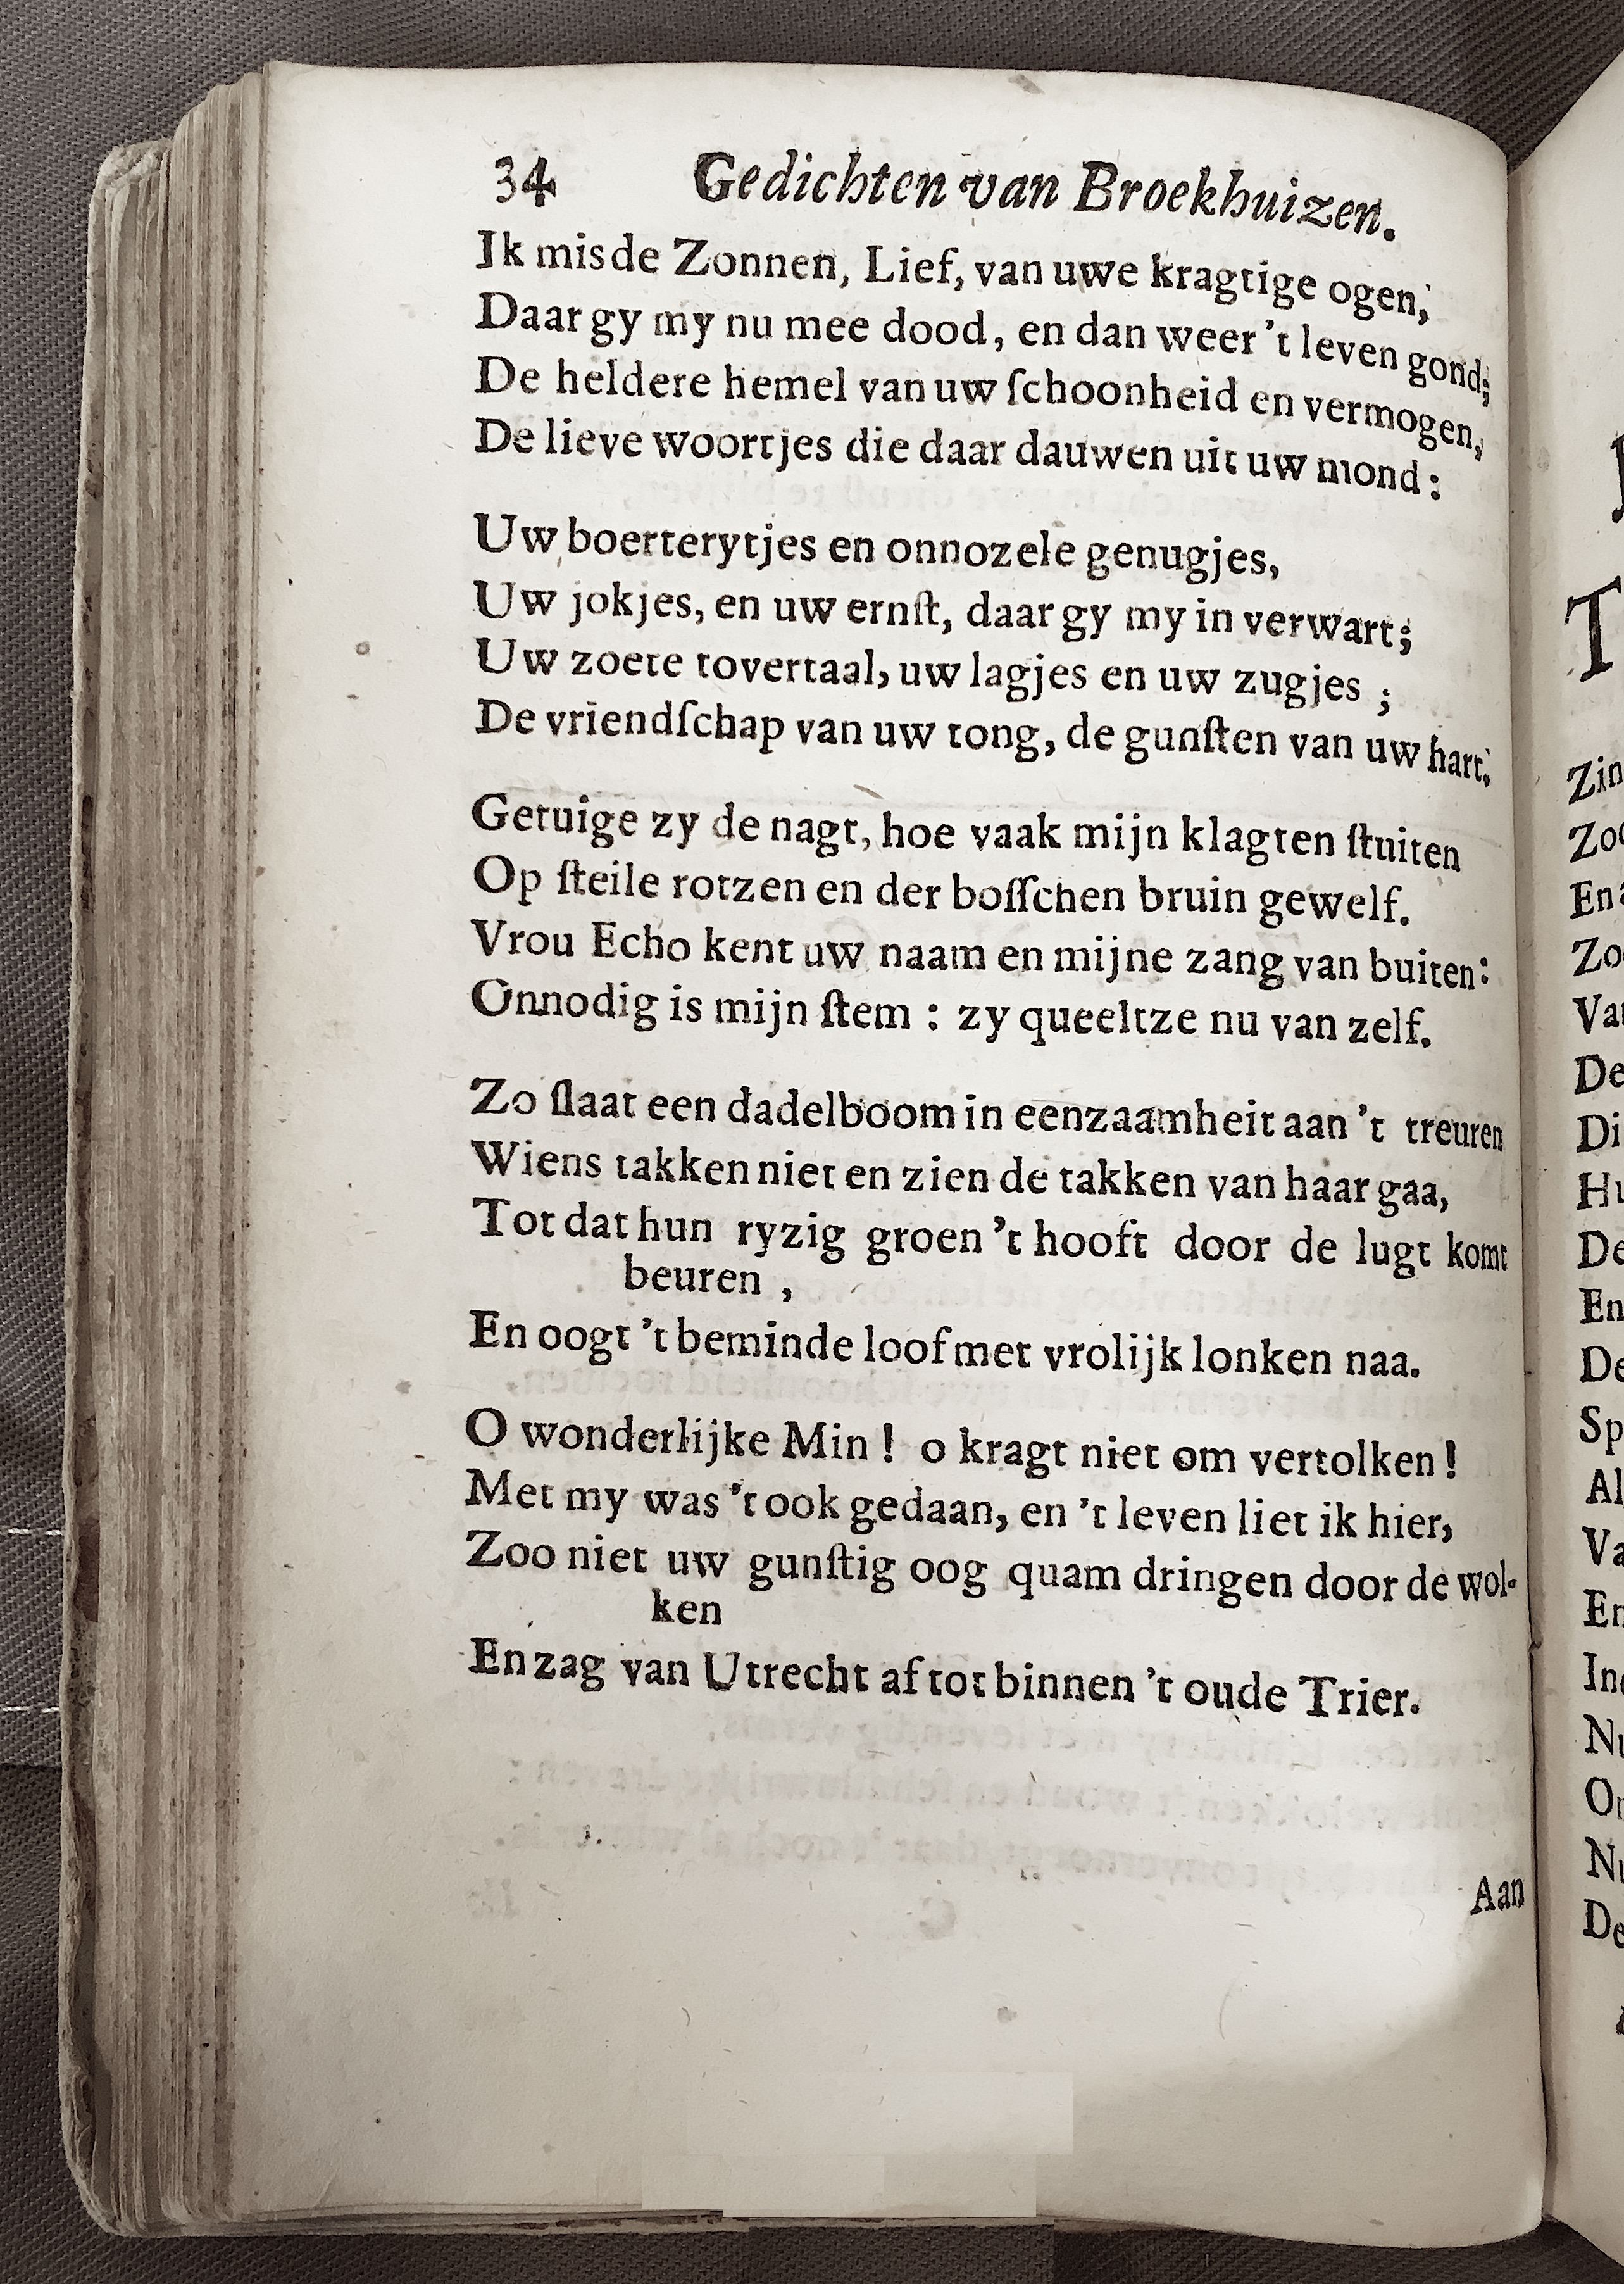 34 Gedichten van Broekhuizen.
Ik mis de Zonnen, Lief, van uwe kragtige ogen,
Daar gy my nu mee dood, en dan weer 't leven gond;
De heldere hemel van uw ſchoonheid en vermogen,
De lieve woortjes die daar dauwen uit uw mond:
Uw boerterytjes en onnozele genugjes,
Uw jokjes, en uw ernſt, daar gy my in verwart;
Uw zoete tovertaal, uw lagjes en uw zugjes ;
De vriendſchap van uw tong, de gunſten van uw hart.
Getuige zy de nagt, hoe vaak mijn klagten ſtuiten
Op ſteile rotzen en der boſſchen bruin gewelf.
Vrou Echo kent uw naam en mijne zang van buiten:
Onnodig is mijn ſtem : zy queeltze nu van zelf.
Zo ſlaat een dadelboom in eenzaamheit aan 't treuren
Wiens takken niet en zien de takken van haar gaa,
Tot dat hun ryzig groen 't hooft door de lugt komt
beuren ,
En oogt 't beminde loof met vrolijk lonken naa.
O wonderlijke Min ! o kragt niet om vertolken !
Met my was 't ook gedaan, en 't leven liet ik hier,
Zoo niet uw gunſtig oog quam dringen door de wol-
ken
En zag van Utrecht af tot binnen 't oude Trier.
Aan
T
Zin
Zoo
En
Zo
Va
De
Di
Hu
De
En
De
Sp
Al
Va
En
In
Nu
On
Nu
De